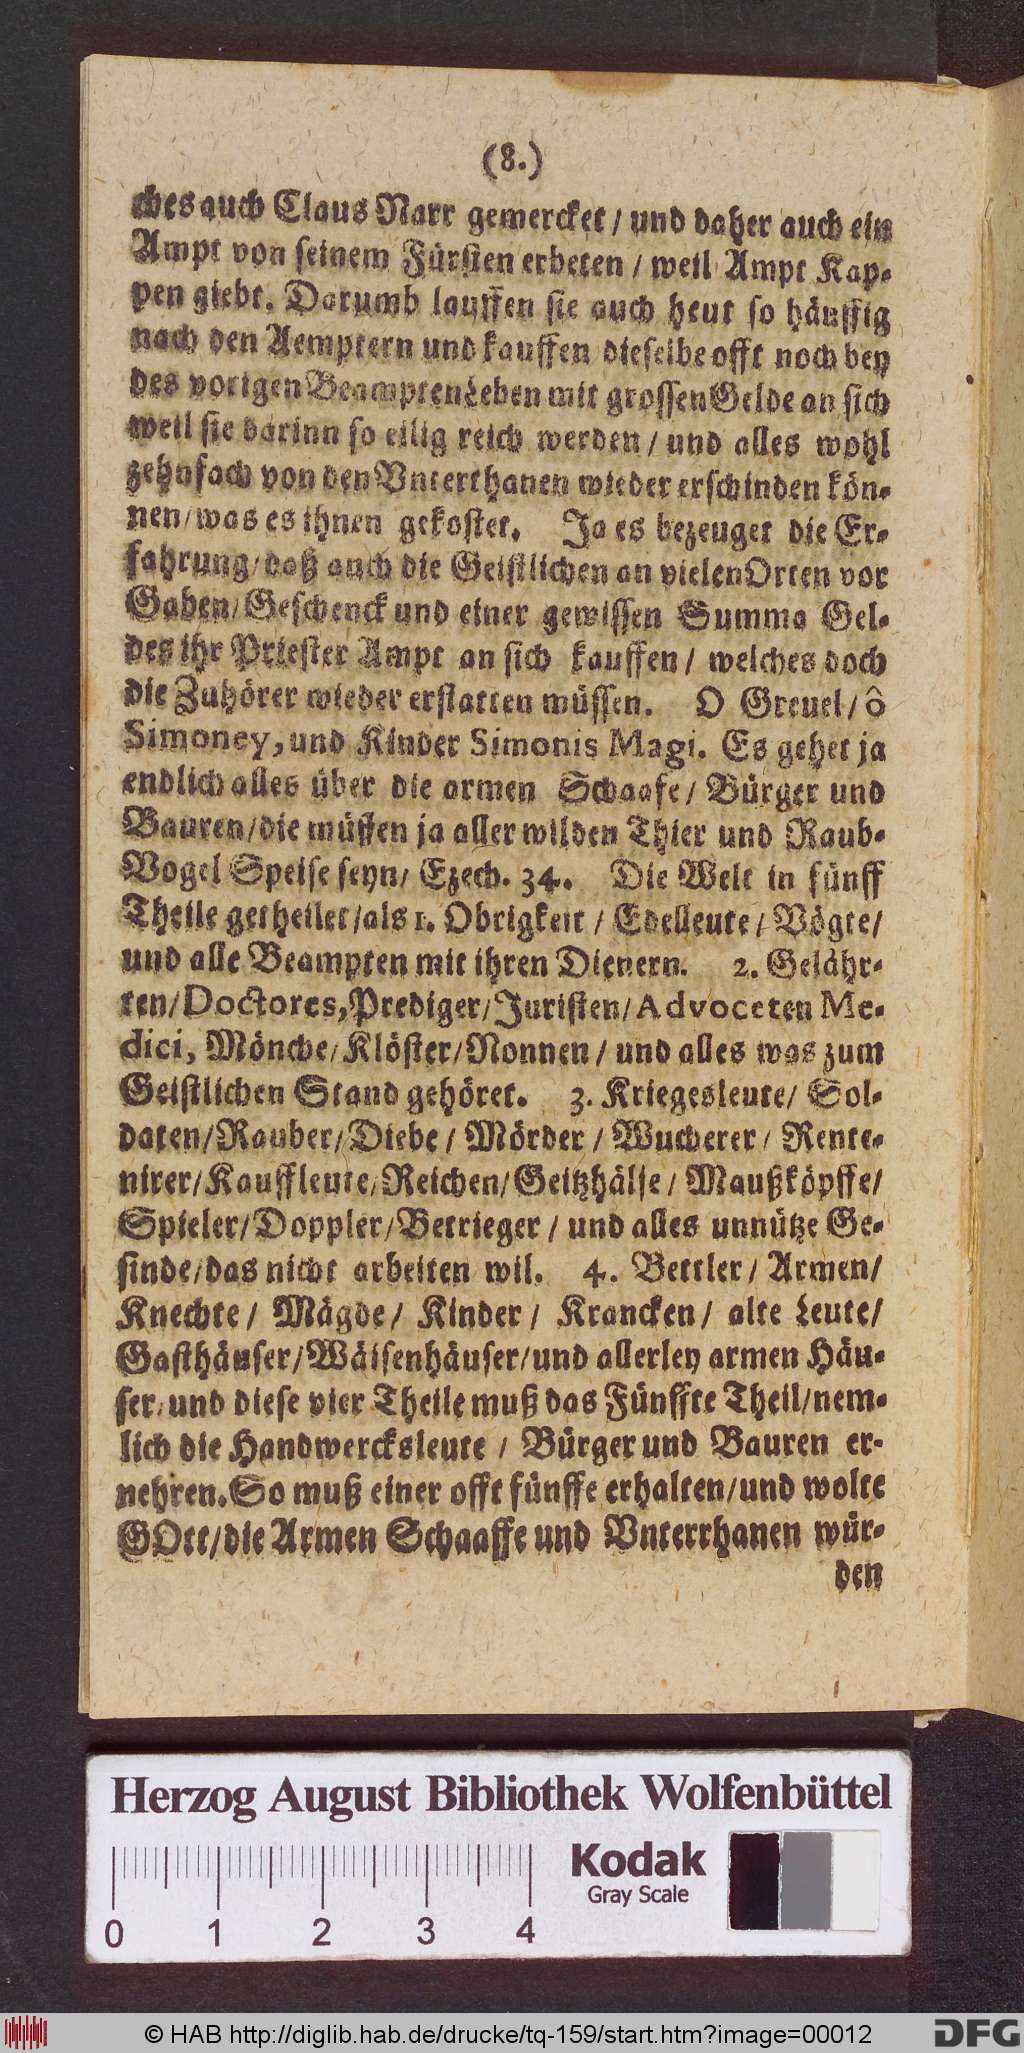 (8.)
ches auch Claus Narr gemercket / und daher auch ein
Ampt von seinem Fürsten erbeten / weil Ampt Kap-
pen giebt. Darumb lauffen sie auch heut so häuffig
nach den Aemptern und kauffen dieselbe offt noch bey
des vorigen Beampten Leben mit grossen Gelde an sich
weil sie darinn so eilig reich werden / und alles wohl
zehnfach von den Vnterthanen wieder erschinden kön-
nen / was es ihnen gekostet. Ja es bezeuget die Er-
fahrung / daß auch die Geistlichen an vielen Orten vor
Gaben / Geschenck und einer gewissen Summa Gel-
des ihr Priester Ampt an sich kauffen / welches doch
die Zuhörer wieder erstatten müssen. O Greuel / ô
Simoney, und Kinder Simonis Magi. Es gehet ja
endlich alles über die armen Schaafe / Bürger und
Bauren / die müssen ja aller wilden Thier und Raub-
Vogel Speise seyn / Ezech. 34. Die Welt in fünff
Theile getheilet / als 1. Obrigkeit / Edelleute / Vögte /
und alle Beampten mit ihren Dienern. 2. Gelähr-
ten / Doctores, Prediger / Juristen / Advoceten Me-
dici, Mönche / Klöster / Nonnen / und alles was zum
Geistlichen Stand gehöret. 3. Kriegesleute / Sol-
daten / Rauber / Diebe / Mörder / Wucherer / Rente-
nirer / Kauffleute / Reichen / Geitzhälse / Maußköpffe /
Spieler / Doppler / Betrieger / und alles unnütze Ge-
sinde / das nicht arbeiten wil. 4. Bettler / Armen /
Knechte / Mägde / Kinder / Krancken / alte Leute /
Gasthäuser / Wäisenhäuser / und allerley armen Häu-
ser / und diese vier Theile muß das Fünffte Theil / nem-
lich die Handwercksleute / Bürger und Bauren er-
nehren. So muß einer offt fünffe erhalten / und wolte
GOtt / die Armen Schaaffe und Vnterrhanen wür-
den
Herzog August Bibliothek Wolfenbüttel
Kodak
Gray Scale
0 1 2 3 4
© HAB http://diglib.hab.de/drucke/tq-159/start.htm?image=00012
DFG